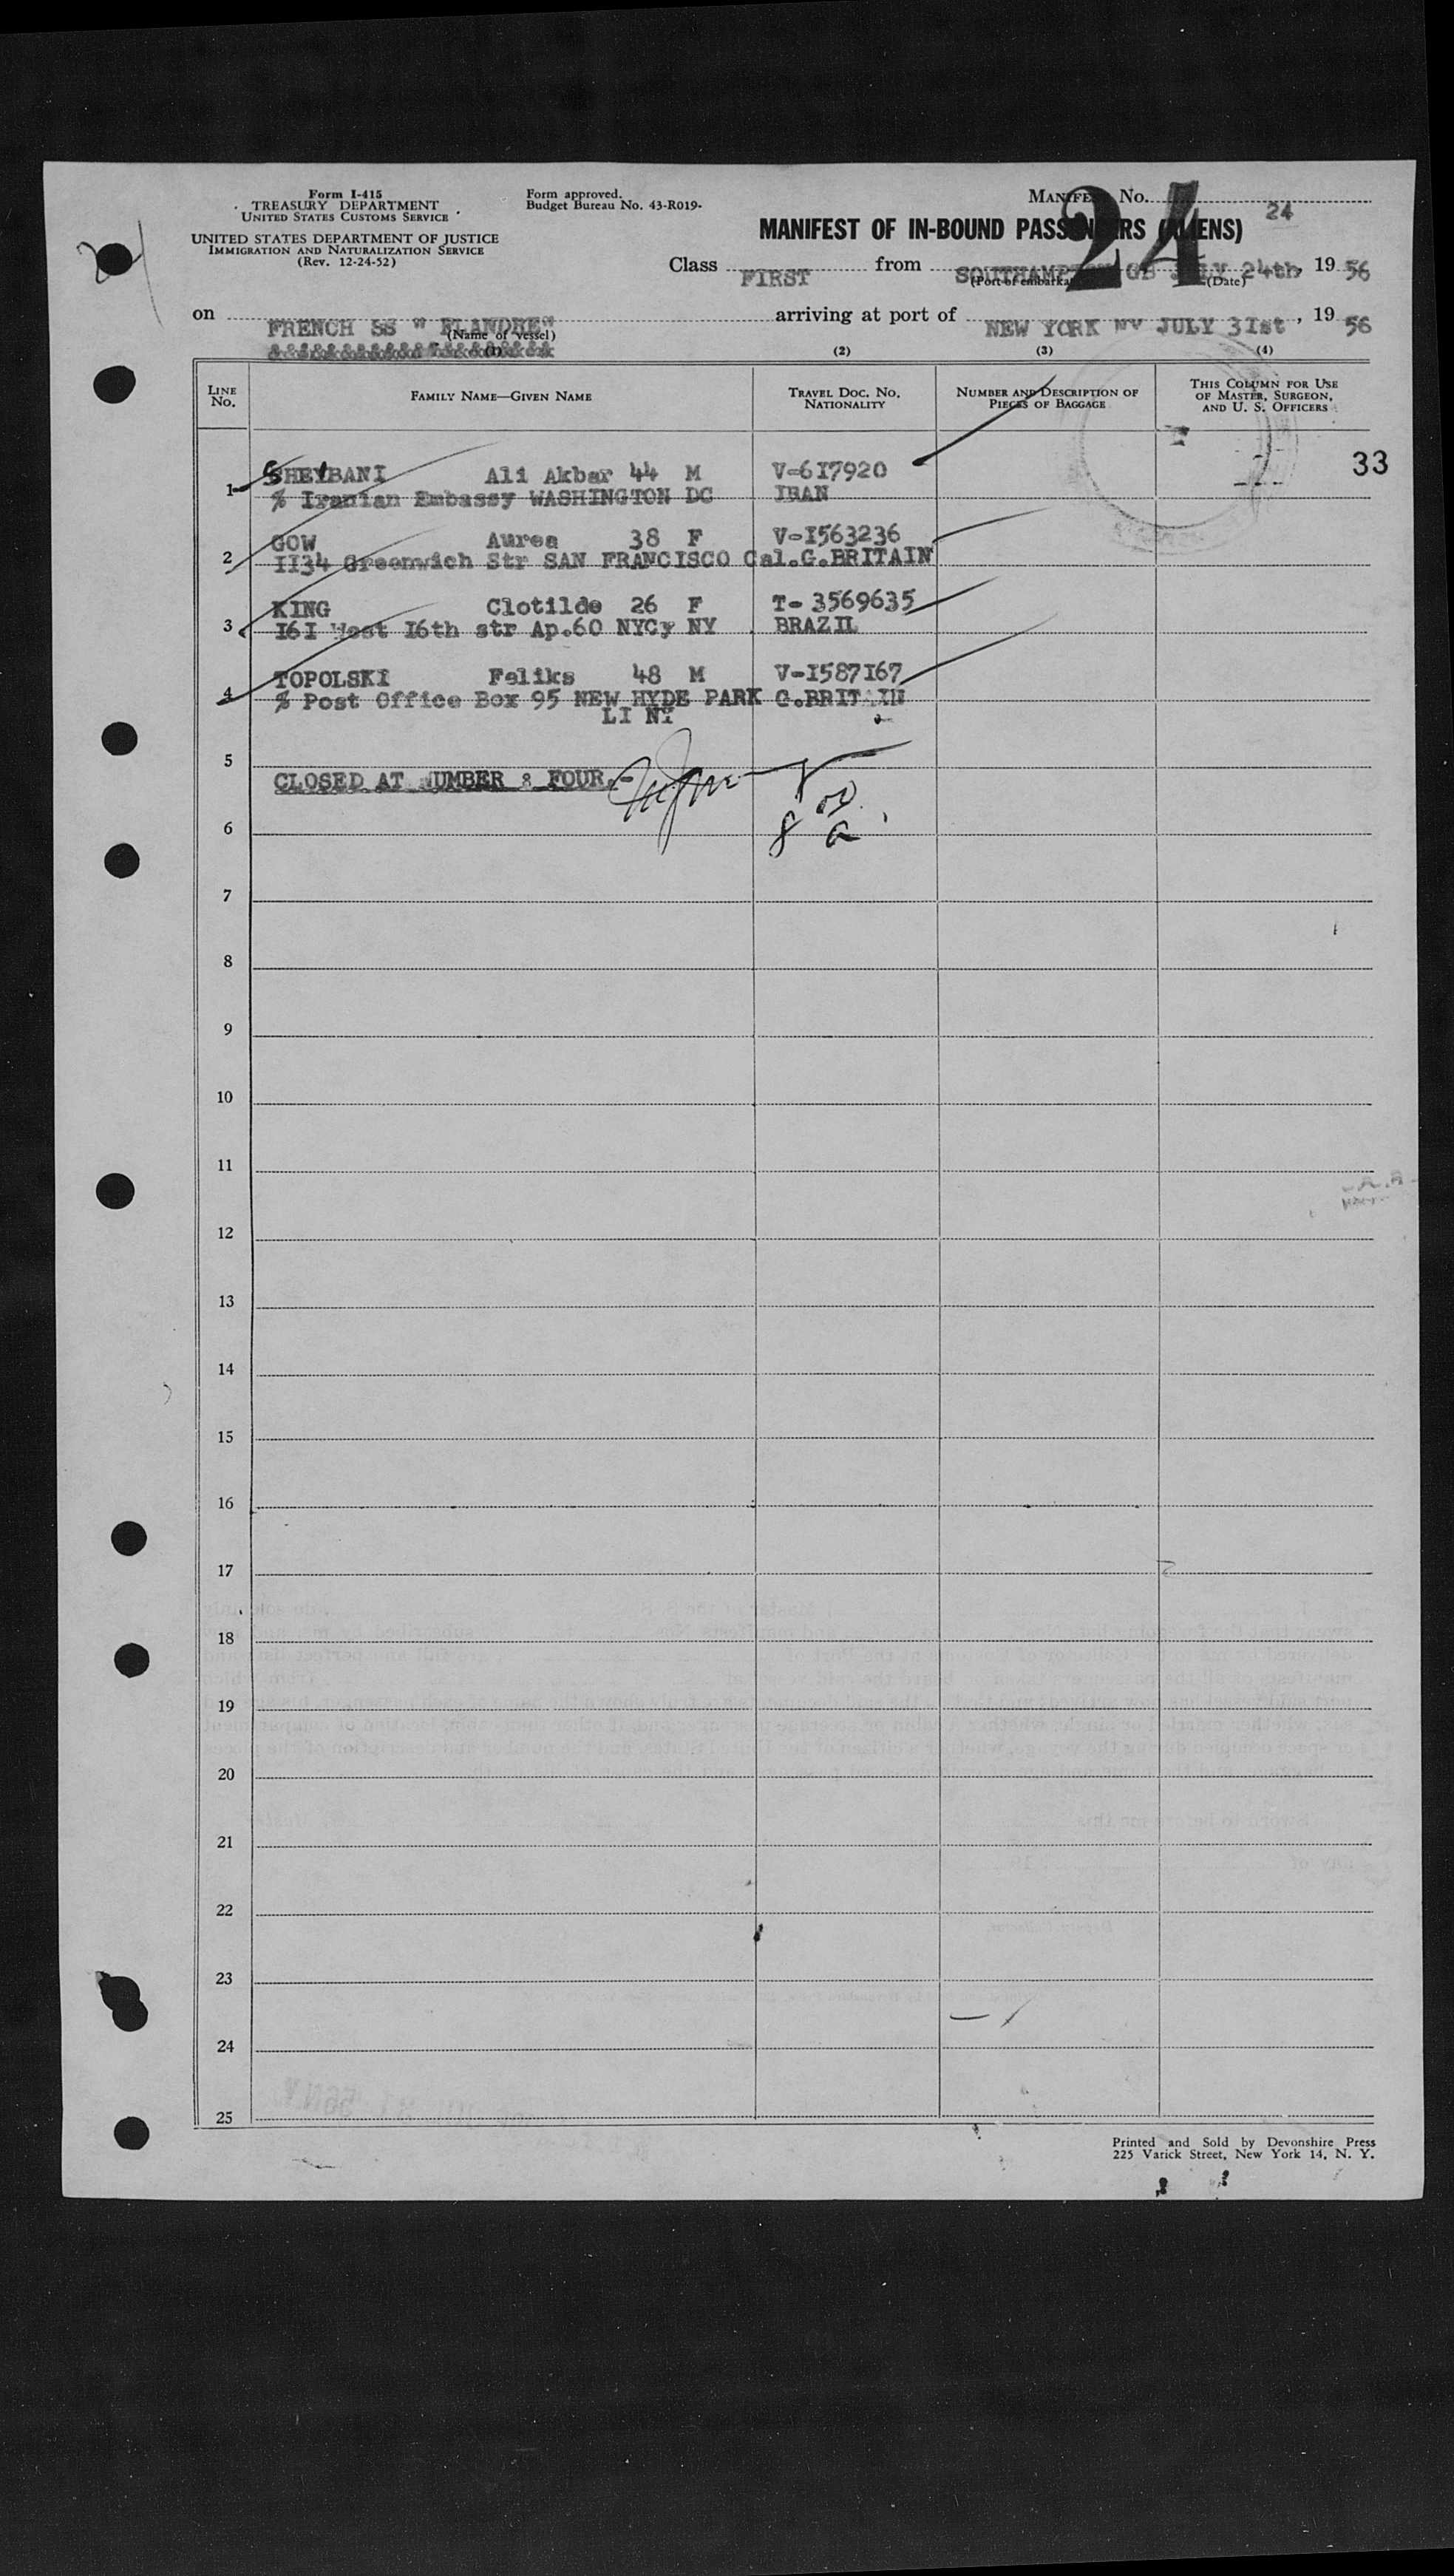 Form I-415
TREASURY DEPARTMENT
UNITED STATES CUSTOMS SERVICE
UNITED STATES DEPARTMENT OF JUSTICE
IMMIGRATION AND NATURALIZATION SERVICE
(Rev. 12-24-52)
Form approved.
Budget Bureau No. 43-R019-
MANIFEST No. 24
24
MANIFEST OF IN-BOUND PASSENGERS (ALIENS)
Class FIRST from SOUTHAMPTON GB JULY 24th, 19 56
(Port of embarkation) (Date)
on FRENCH SS " FLANDRE" arriving at port of NEW YORK NY JULY 3Ist, 19 56
(Name of vessel)
(1) (2) (3) (4)
LINE No. FAMILY NAME—GIVEN NAME TRAVEL DOC. NO. NATIONALITY NUMBER AND DESCRIPTION OF PIECES OF BAGGAGE THIS COLUMN FOR USE OF MASTER, SURGEON, AND U. S. OFFICERS
33
SHEYBANI Ali Akbar 44 M V-6I7920
1 % Iranian Embassy WASHINGTON DC IRAN
GOW Aurea 38 F V-I563236
2 II34 Greenwich Str SAN FRANCISCO Cal. G.BRITAIN
KING Clotilde 26 F T- 3569635
3 I6I West I6th str Ap.60 NYCy NY BRAZIL
TOPOLSKI Feliks 48 M V-I587I67
4 % Post Office Box 95 NEW HYDE PARK G.BRITAIN
LI NY
5
CLOSED AT NUMBER : FOUR.-
6
7
8
9
10
11
12
13
14
15
16
17
18
19
20
21
22
23
24
25
Printed and Sold by Devonshire Press
225 Varick Street, New York 14, N. Y.